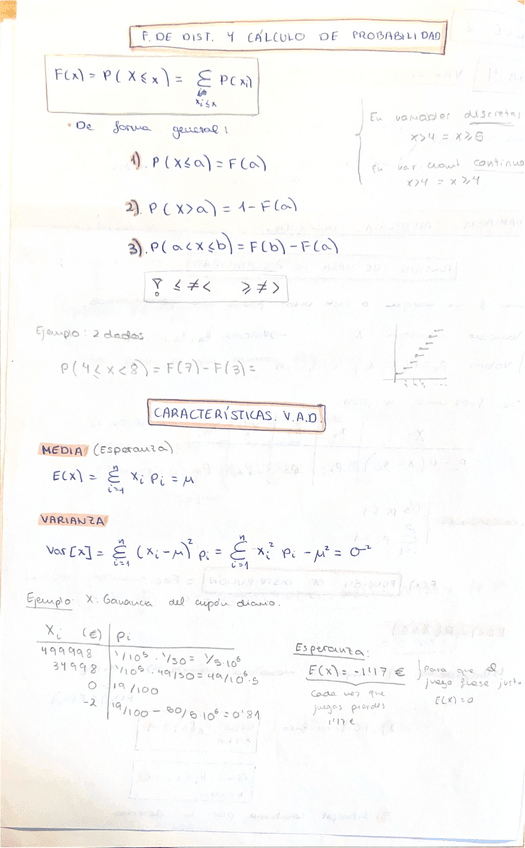 F. DE DIST. Y CÁLCULO DE PROBABILIDAD
F(x) = P(X ≤ x) = Σ P(xi)
xi ≤ x
• De forma general:
En variables discretas
x>4 = x≥5
En var continua
x>4 = x≥4
1). P(x≤a) = F(a)
2). P(x>a) = 1 - F(a)
3). P(a<x≤b) = F(b) - F(a)
≤ ≠ < ≥ ≠ >
Ejemplo: 2 dados
P(4≤x<8) = F(7) - F(3) =
CARACTERÍSTICAS. V.A.D.
MEDIA (Esperanza)
E(x) = Σ xi pi = μ
n
i=1
VARIANZA
Var[x] = Σ (xi - μ)² pi = Σ xi² pi - μ² = σ²
n n
i=1 i=1
Ejemplo: X: Ganancia del cupón diario.
Xi (€) Pi
499998 1/10⁵ · 1/50 = 1/5·10⁶
34998 1/10⁵ · 49/50 = 49/10⁶·5
0 19/100
-2 19/100 - 50/5·10⁶ = 0'81
Esperanza:
E(x) = -1'17 €
Cada vez que
juegas pierdes
1'17 €
para que el
juego fuese justo
E(x)=0